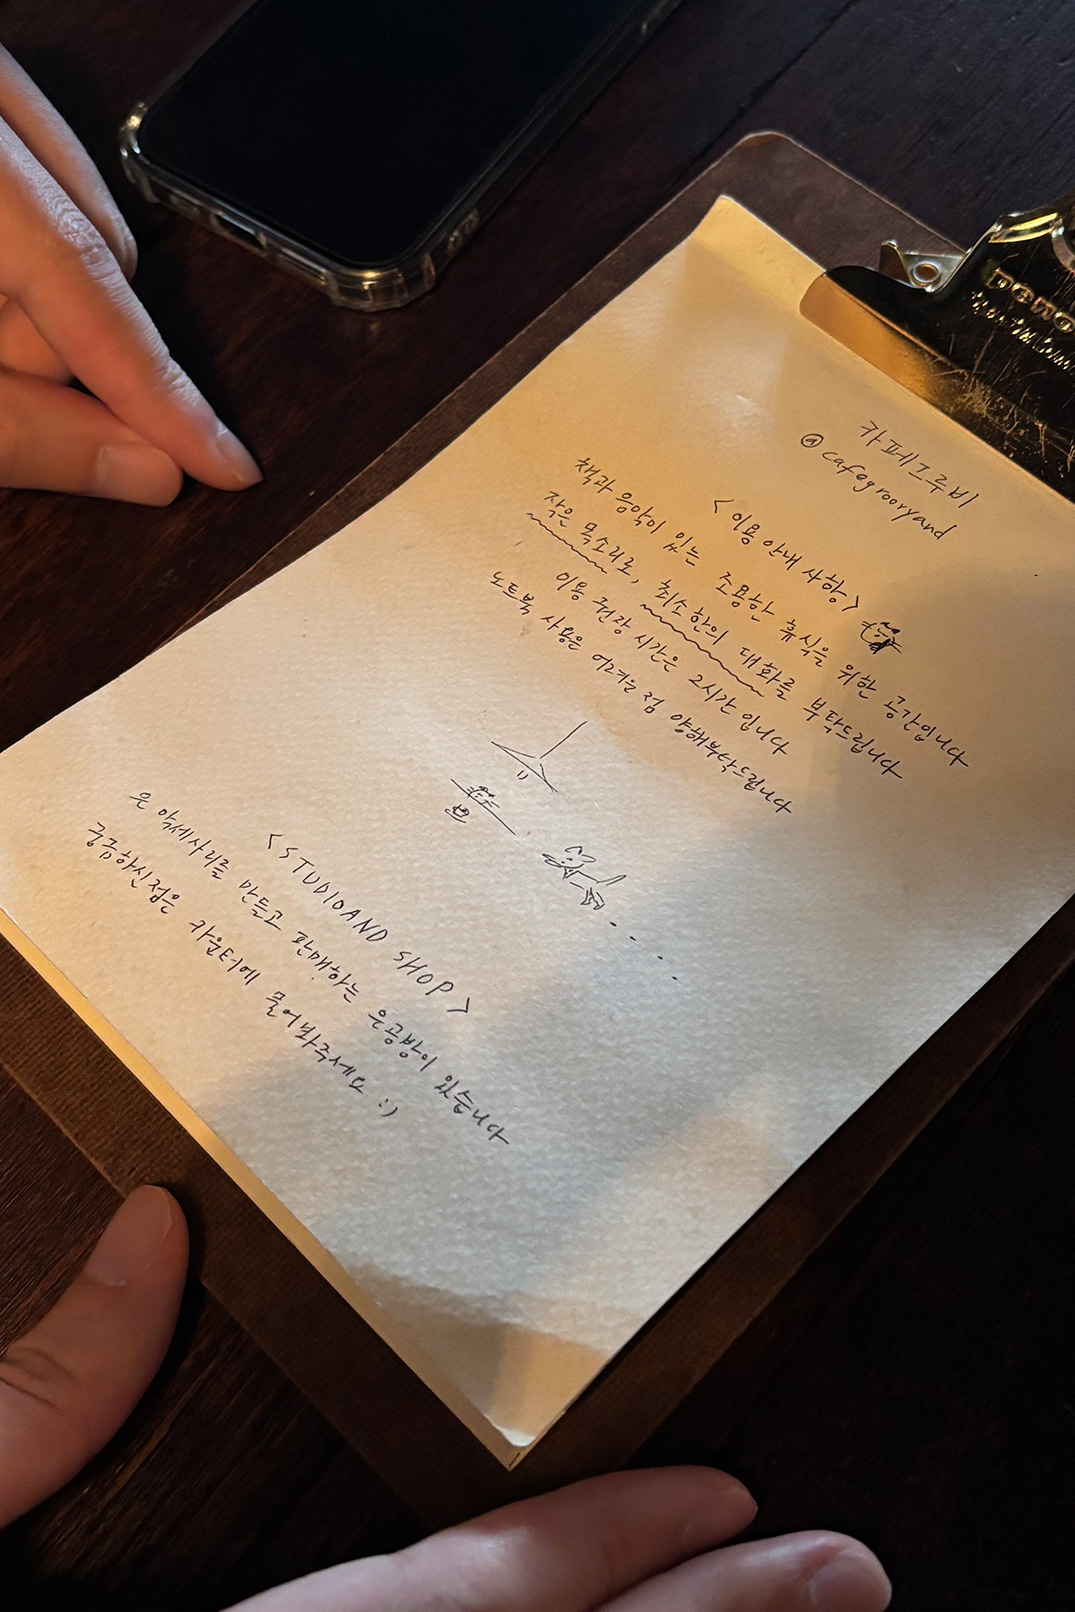 카페그루비
@cafegroovyand
<이용 안내 사항>
책과 음악이 있는 조용한 휴식을 위한 공간입니다
작은 목소리로, 최소한의 대화를 부탁드립니다
이용 권장 시간은 2시간 입니다
노트북 사용은 어려운 점 양해부탁드립니다
<STUDIOAND SHOP>
은 악세사리를 만들고 판매하는 은공방이 있습니다
궁금하신점은 카운터에 물어봐주세요 :)